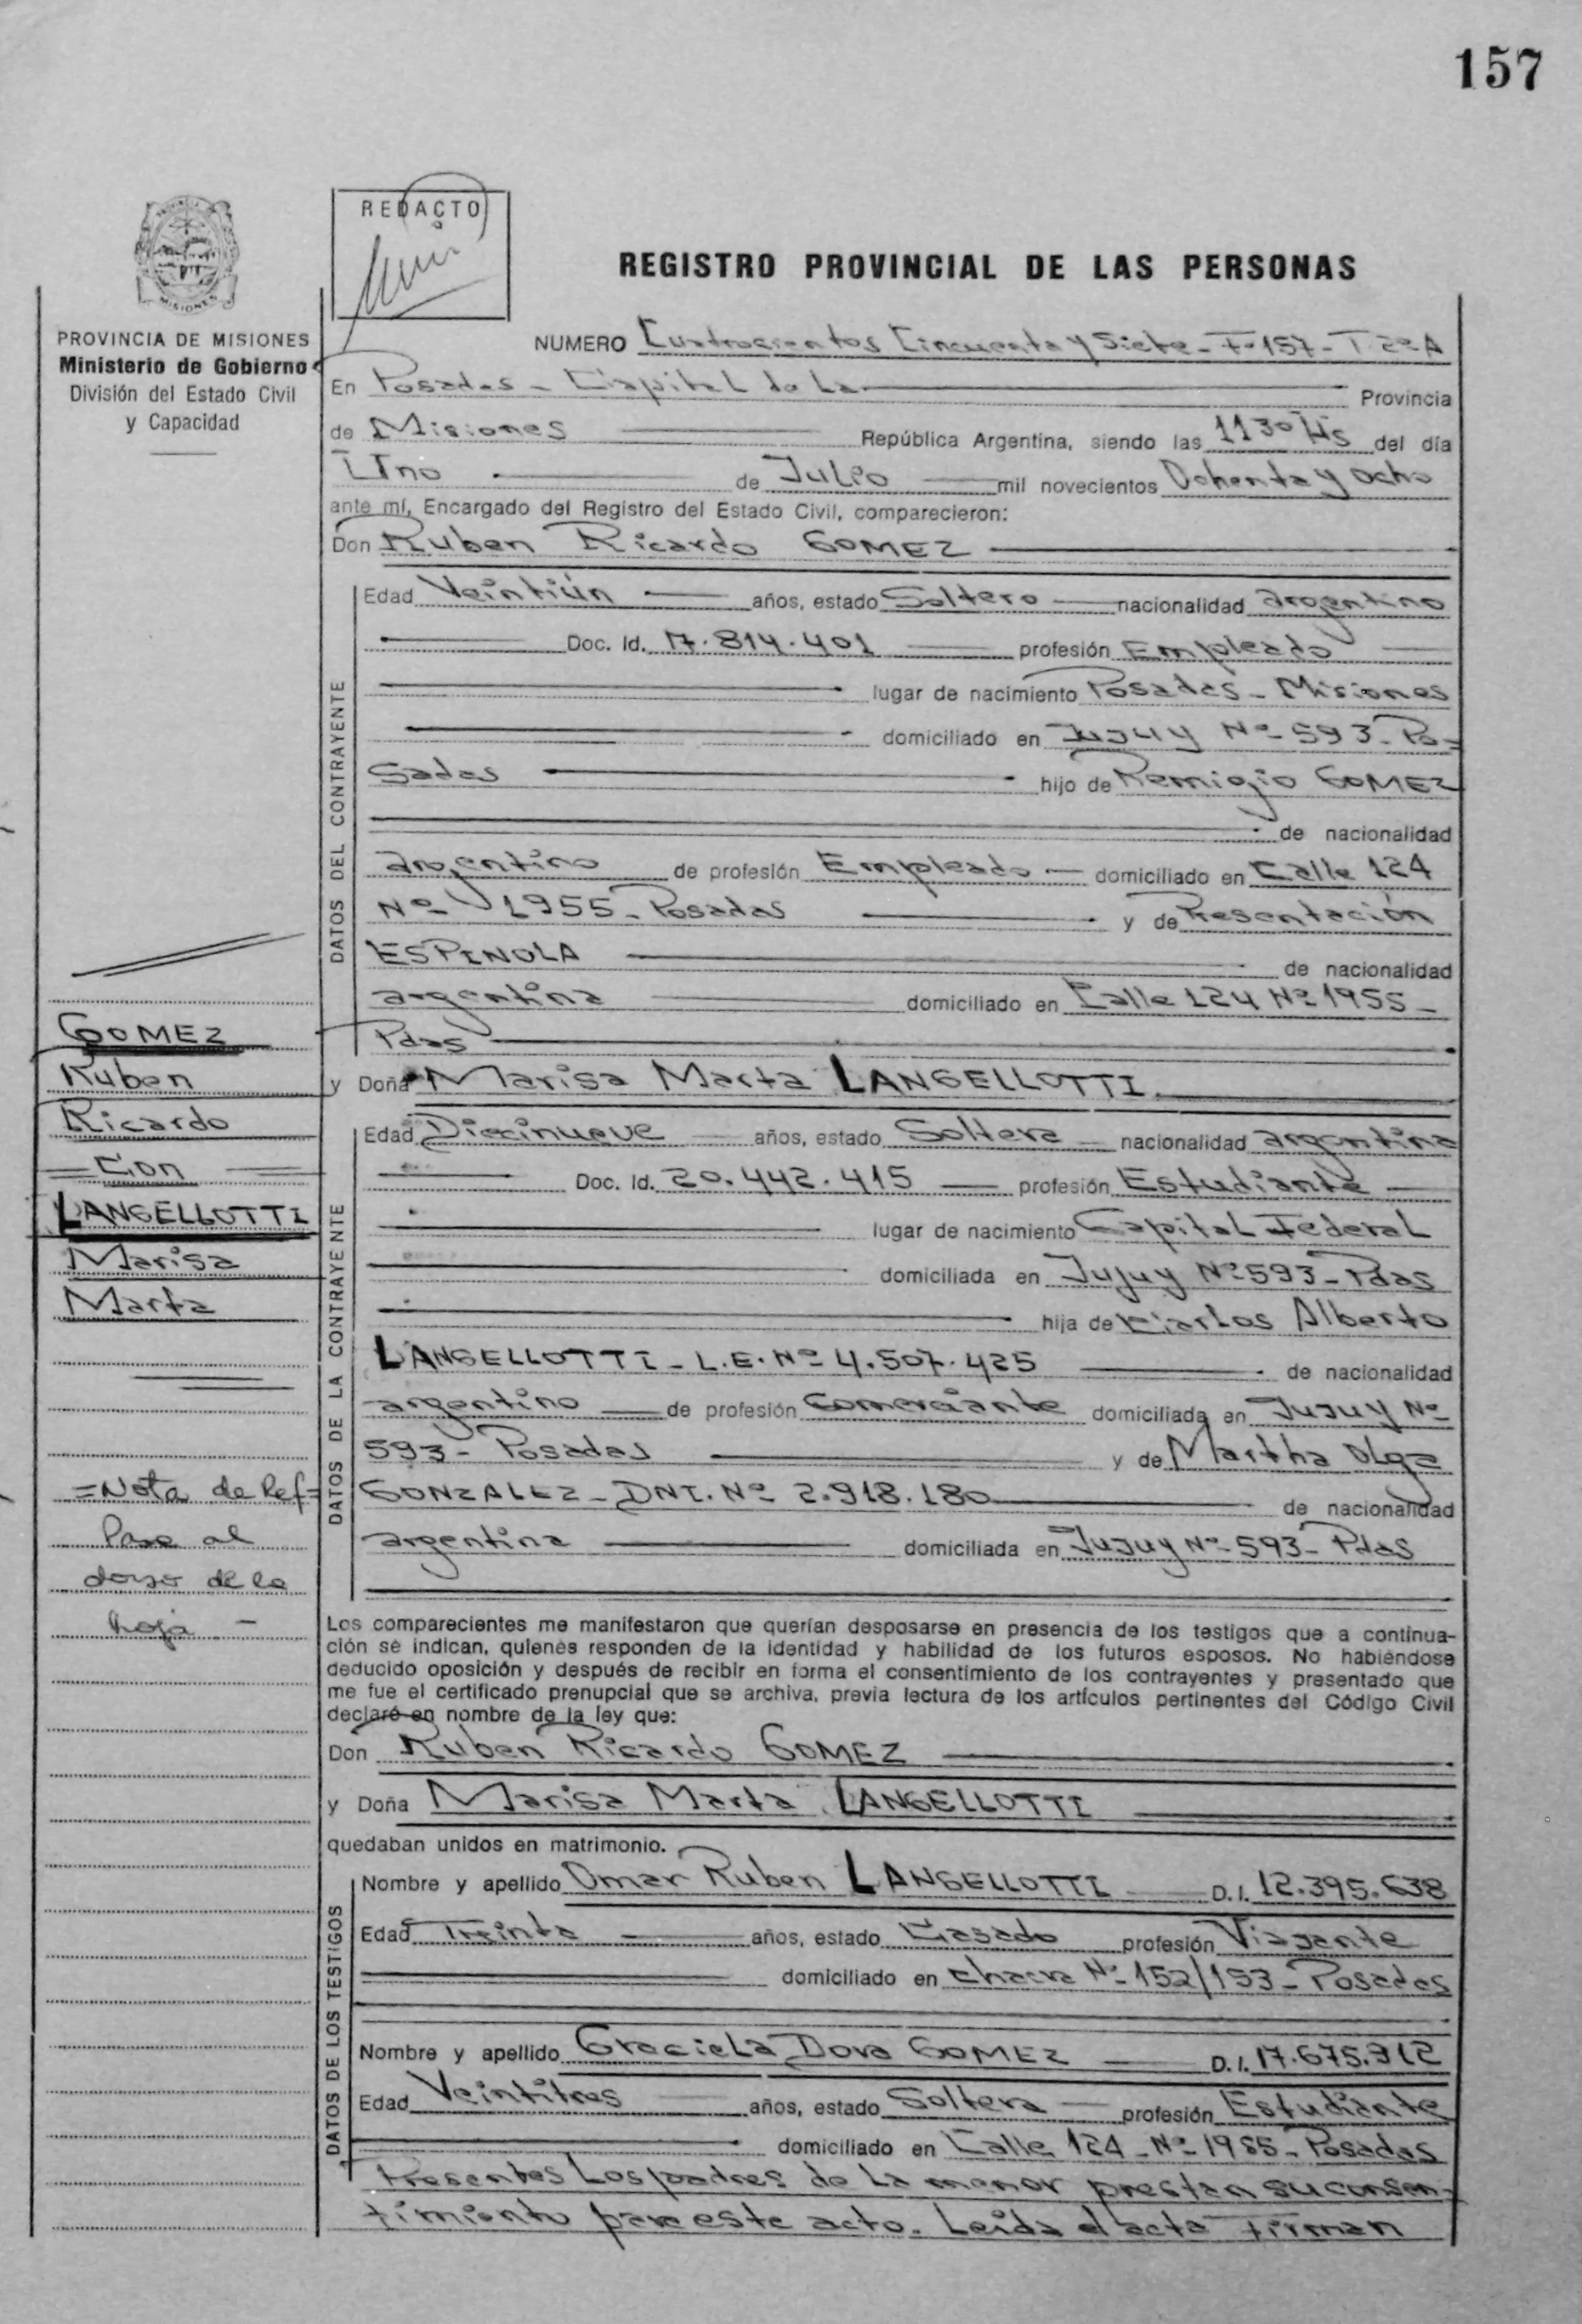 157
REDACTO
REGISTRO PROVINCIAL DE LAS PERSONAS
PROVINCIA DE MISIONES
Ministerio de Gobierno
División del Estado Civil
y Capacidad
NUMERO Cuatrocientos Cincuenta y Siete - Fº 157 - T 2º A
En Posadas - Capital de La Provincia
de Misiones República Argentina, siendo las 1130 Hs del día
Uno de Julio mil novecientos Ochenta y Ocho
ante mí, Encargado del Registro del Estado Civil, comparecieron:
Don Ruben Ricardo GOMEZ
DATOS DEL CONTRAYENTE
Edad Veintiún años, estado Soltero nacionalidad argentino
Doc. Id. 17.814.401 profesión Empleado
lugar de nacimiento Posadas - Misiones
domiciliado en Jujuy Nº 593 - Po=
sadas hijo de Remigio GOMEZ
de nacionalidad
argentino de profesión Empleado domiciliado en Calle 124
Nº 1955 - Posadas y de Presentación
ESPINOLA de nacionalidad
argentina domiciliado en Calle 124 Nº 1955 -
Pdas
y Doña Marisa Marta LANGELLOTTI
DATOS DE LA CONTRAYENTE
Edad Diecinueve años, estado Soltera nacionalidad argentina
Doc. Id. 20.442.415 profesión Estudiante
lugar de nacimiento Capital Federal
domiciliada en Jujuy Nº 593 - Pdas
hija de Carlos Alberto
LANGELLOTTI - L.E. Nº 4.507.425 de nacionalidad
argentino de profesión Comerciante domiciliada en Jujuy Nº
593 - Posadas y de Martha Olga
GONZALEZ - DNI. Nº 2.918.180 de nacionalidad
argentina domiciliada en Jujuy Nº 593 - Pdas
GOMEZ
Ruben
Ricardo
= Con =
LANGELLOTTI
Marisa
Marta
=Nota de Ref=
Pase al
dorso de la
hoja -
Los comparecientes me manifestaron que querían desposarse en presencia de los testigos que a continua-
ción se indican, quienes responden de la identidad y habilidad de los futuros esposos. No habiéndose
deducido oposición y después de recibir en forma el consentimiento de los contrayentes y presentado que
me fue el certificado prenupcial que se archiva, previa lectura de los artículos pertinentes del Código Civil
declaré en nombre de la ley que:
Don Ruben Ricardo GOMEZ
y Doña Marisa Marta LANGELLOTTI
quedaban unidos en matrimonio.
DATOS DE LOS TESTIGOS
Nombre y apellido Omar Ruben LANGELLOTTI D.I. 12.395.638
Edad Treinta años, estado Casado profesión Viajante
domiciliado en Chacra Nº 152/153 - Posadas
Nombre y apellido Graciela Dora GOMEZ D.I. 17.675.912
Edad Veintitres años, estado Soltera profesión Estudiante
domiciliado en Calle 124 - Nº 1955 - Posadas
Presentes Los padres de La menor prestan su consen-
timiento para este acto. Leída el acta Firman